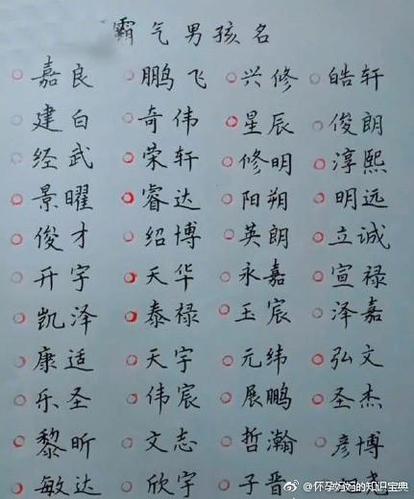 霸气男孩名
嘉良 鹏飞 兴修 皓轩
建白 奇伟 星辰 俊朗
经武 荣轩 修明 淳熙
景曜 睿达 阳朔 明远
俊才 绍博 英朗 立诚
开宇 天华 永嘉 宣禄
凯泽 泰禄 王宸 泽嘉
康适 天宇 元纬 弘文
乐圣 伟宸 展鹏 圣杰
黎昕 文志 哲瀚 彦博
敏达 欣宇 子晋
@怀孕妈妈的知识宝典